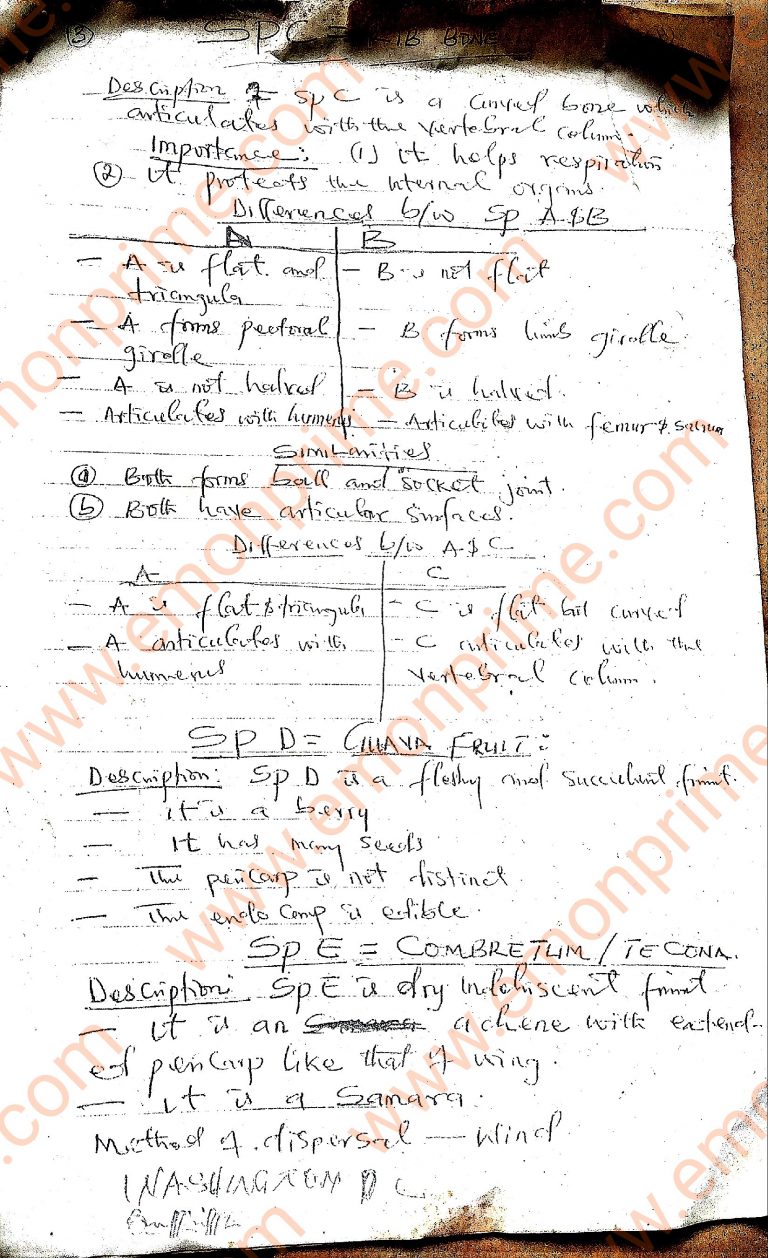 ③ SPC = RIB BONE
Description of SpC is a curved bone which
articulates with the vertebral column.
Importance: (1) it helps respiration
② it protects the internal organs.
Differences b/w Sp A & B
A B
- A is flat and - B is not flat
triangular
- A forms pectoral - B forms limb girdle
girdle
- A is not halved - B is halved.
- Articulates with humerus - Articulates with femur &
Similarities
ⓐ Both forms ball and socket joint.
ⓑ Both have articular surfaces.
Differences b/w A & C
A C
- A is flat & triangular - C is flat but curved
- A articulates with - C articulates with the
humerus vertebral column.
Sp D = GUAVA FRUIT:
Description: Sp D is a fleshy and succulent fruit.
- it is a berry
- It has many seeds
- The pericarp is not distinct
- The endocarp is edible.
Sp E = COMBRETUM / TECONA.
Description: Sp E is dry Indehiscent fruit
- it is an achene with extend-
ed pericarp like that of wing.
- it is a Samara.
Method of dispersal - Wind
WASHINGTON D C
www.emonprime.com